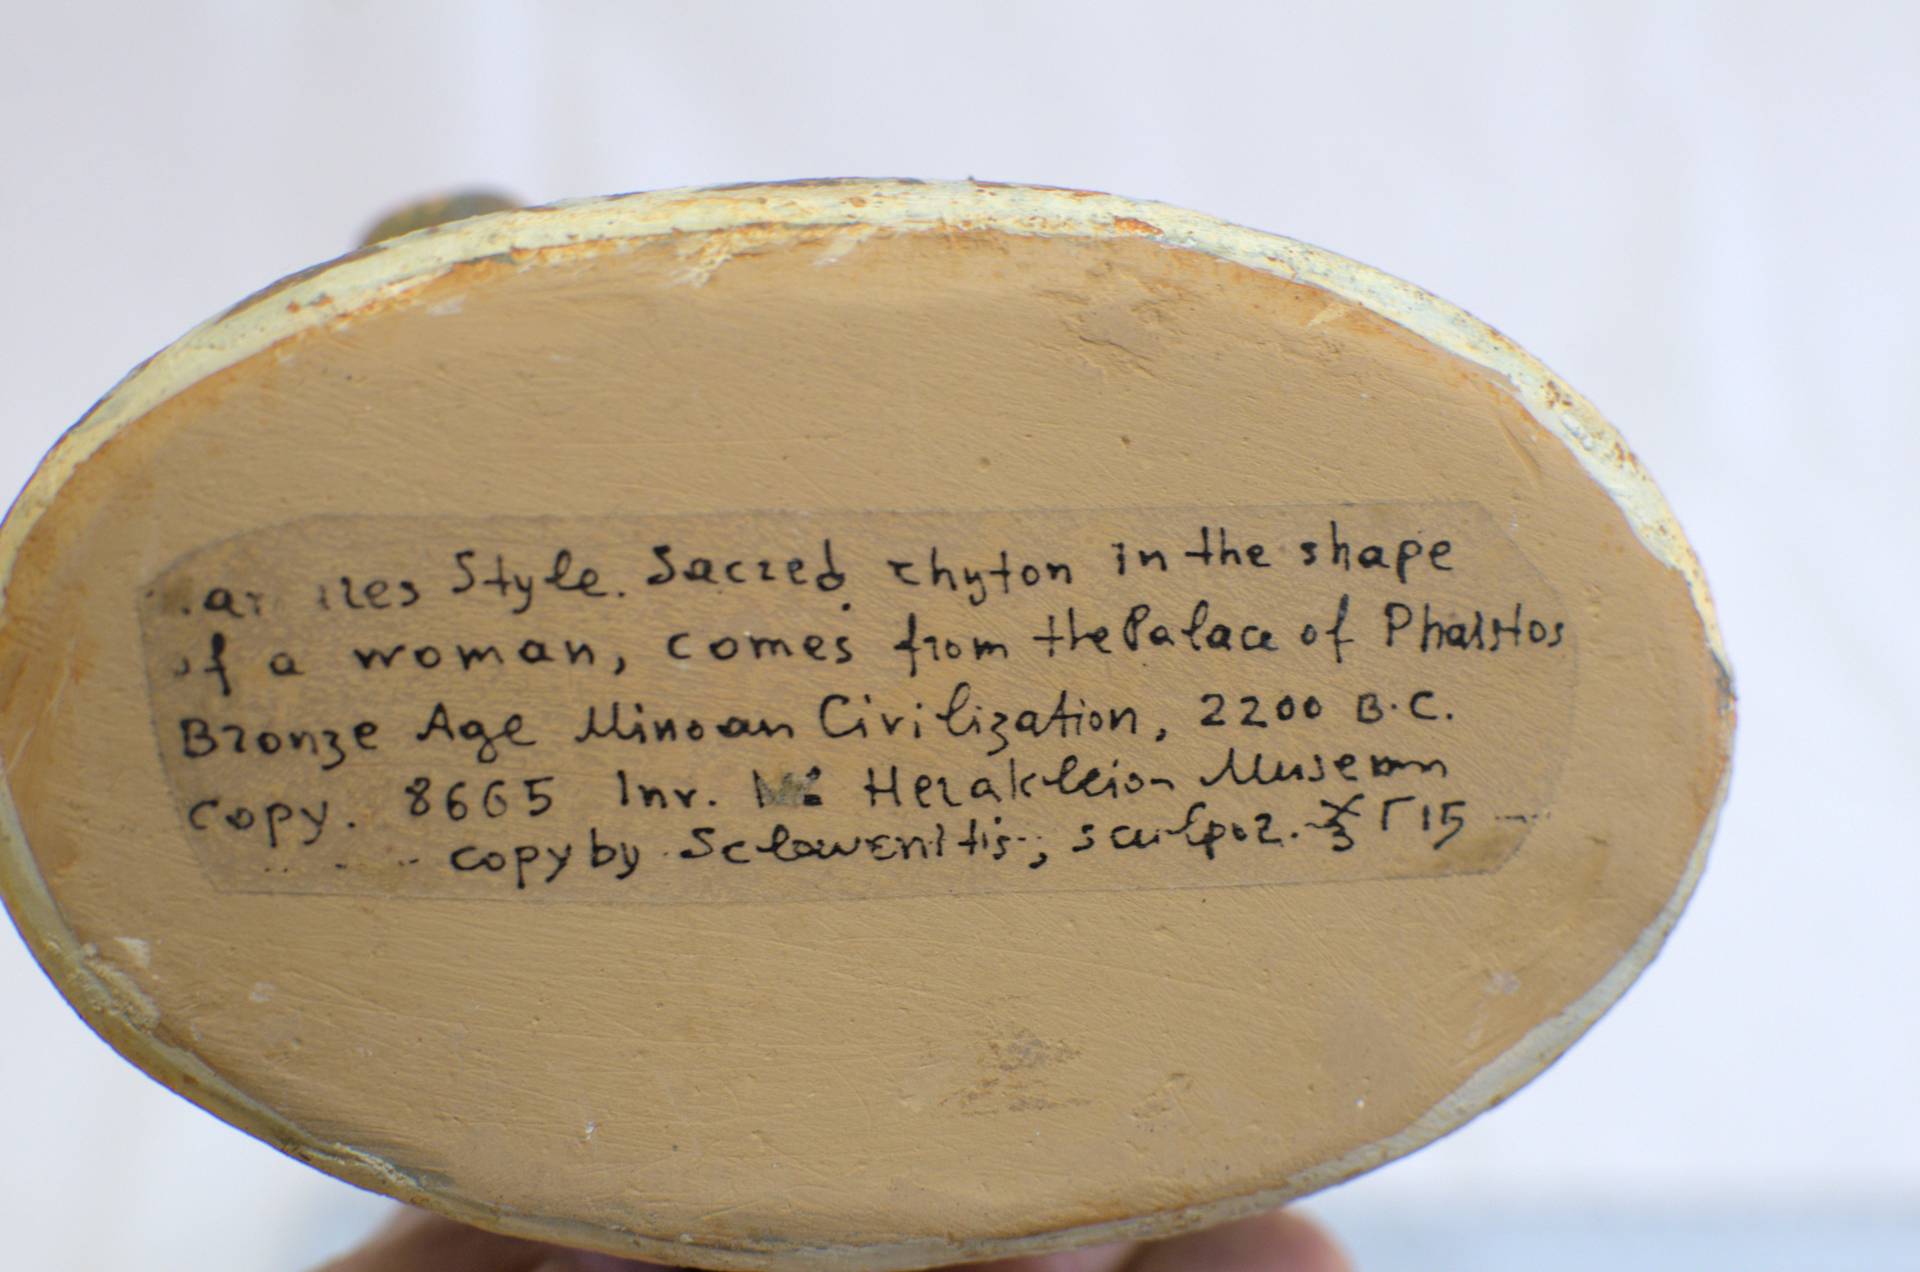 Style. Sacred rhyton in the shape
of a woman, comes from the Palace of Phaistos
Bronze Age Minoan Civilization, 2200 B.C.
copy. 8665 Inr. Herakleion Museum
copy by sculptor. Γ15